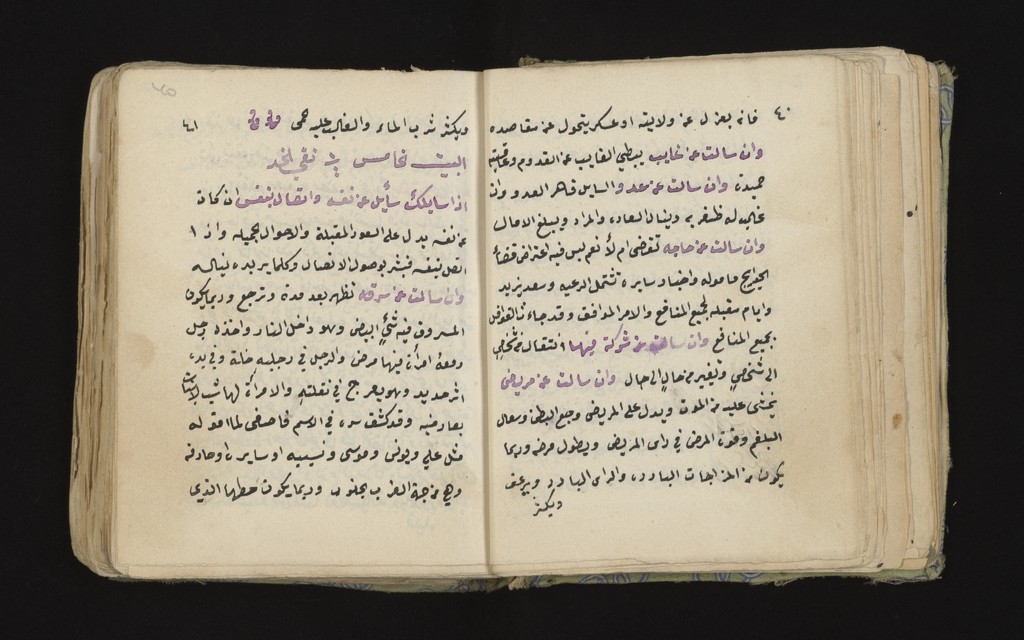 ٤٠
فانه يعزل عن ولايته او عسكر يتحول عن مقاصده
وان سالت عن غايب يبطي الغايب عن القدوم وعاقبته
حميدة وان سالت عن عدو السايل قاهر العدو وان
غالب له ظفر به وينال السعاده والمراد ويبلغ الامال
وان سالت عن حاجه تقضى ام لا نعم ليس فيه اعتراض قضاء
الحوايج مأموله واخبار سايرة تشتمل الرعيه وسعد يزيد
وايام مقبله لجميع المنافع والامر الموافق وقد جاءنا القوافل
بجميع المنافع وان سالت عن شركة فيها انتقال من شخص
الى شخص وتغير من حال الى حال وان سالت عن مريض
يخشى عليه من الموت ويدل على المريض وجع البطن وسعال
البلغم وقوة المرض في راس المريض ويطول مرضه وربما
يكون من المزاجات البارده والراس البارد ويرعف
ويكثر
٤١
ويكثر شرب الماء والغالب عليه حمى
البيت خامس في نقي الخد
اذا سايلك سأيل عن نفسه واتصال بنفس ان كانت
عن نفسه يدل على السعود المقبلة والاحوال الجميله واذا
اتصل بنفسه فبشر بوصول الاتصال وكلما يريده يناله
وان سالت عن سرقه تظهر بعد مدة وترجع وربما يكون
المسروق فيه شيء ابيض وهو داخل الدار واخذه رجل
ومعه امرأة فيها مرض والرجل في رجليه خلة وفي يده
اثر حديد وهو يعرج في نقلته والامرأة لها
بعارضيه وقد كشف سره في الاسم فاصغى لما اقوله
مثل علي ويونس وموسى ونسيبه او سايره او صادفه
وهي من جهة الغرب بجنوب وربما يكون حطها الذي